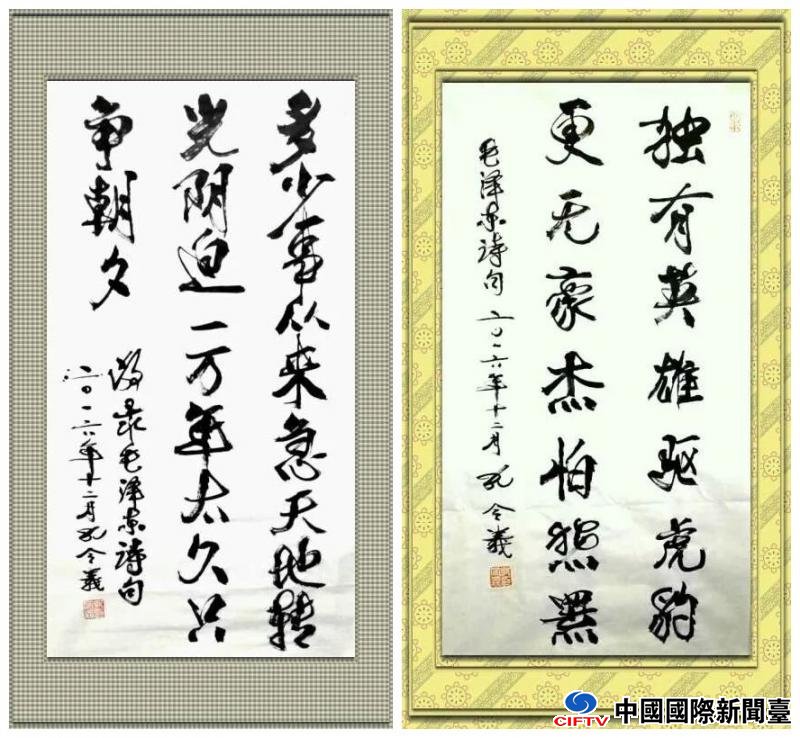 多少事从来急天地转
光阴迫一万年太久只
争朝夕
录毛泽东诗句
二〇一六年十二月孔令義
独有英雄驱虎豹
更无豪杰怕熊罴
毛泽东诗句 二〇一六年十二月 孔令義
CIFTV 中國國際新聞臺